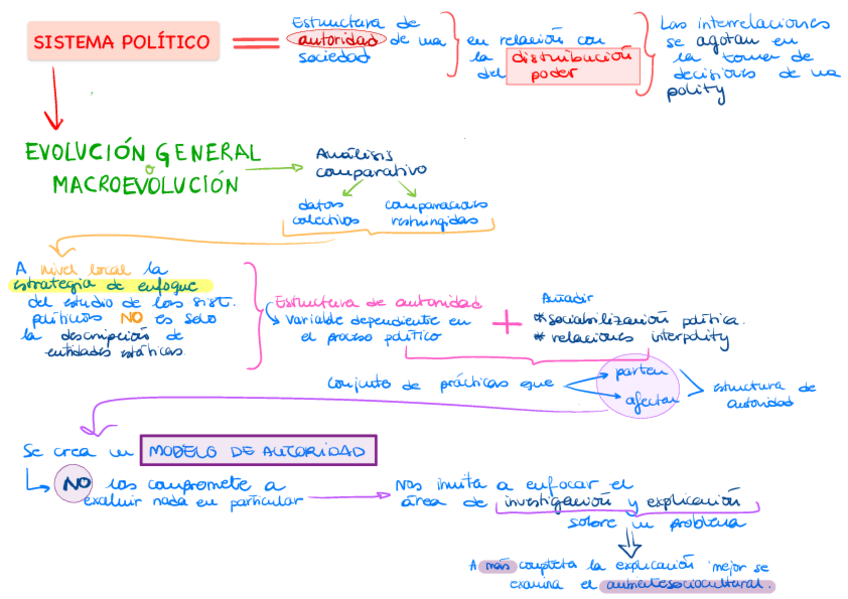 SISTEMA POLÍTICO
Estructura de
autoridad de una
sociedad
en relación con
la distribución
del poder
Las interrelaciones
se agotan en
la toma de
decisiones de una
polity
EVOLUCIÓN GENERAL
o
MACROEVOLUCIÓN
Análisis
comparativo
datos
colectivos
comparaciones
restringidas
A nivel local la
estrategia de enfoque
del estudio de los sist.
políticos NO es solo
la descripción de
entidades estáticas.
Estructura de autoridad
variable dependiente en
el proceso político
+
Añadir
*sociabilización política.
* relaciones interpolity
Conjunto de prácticas que
parten
afectan
estructura de
autoridad
Se crea un MODELO DE AUTORIDAD
NO los compromete a
excluir nada en particular
Nos invita a enfocar el
área de investigación y explicación
sobre un problema
A más completa la explicación mejor se
examina el ambiente sociocultural.